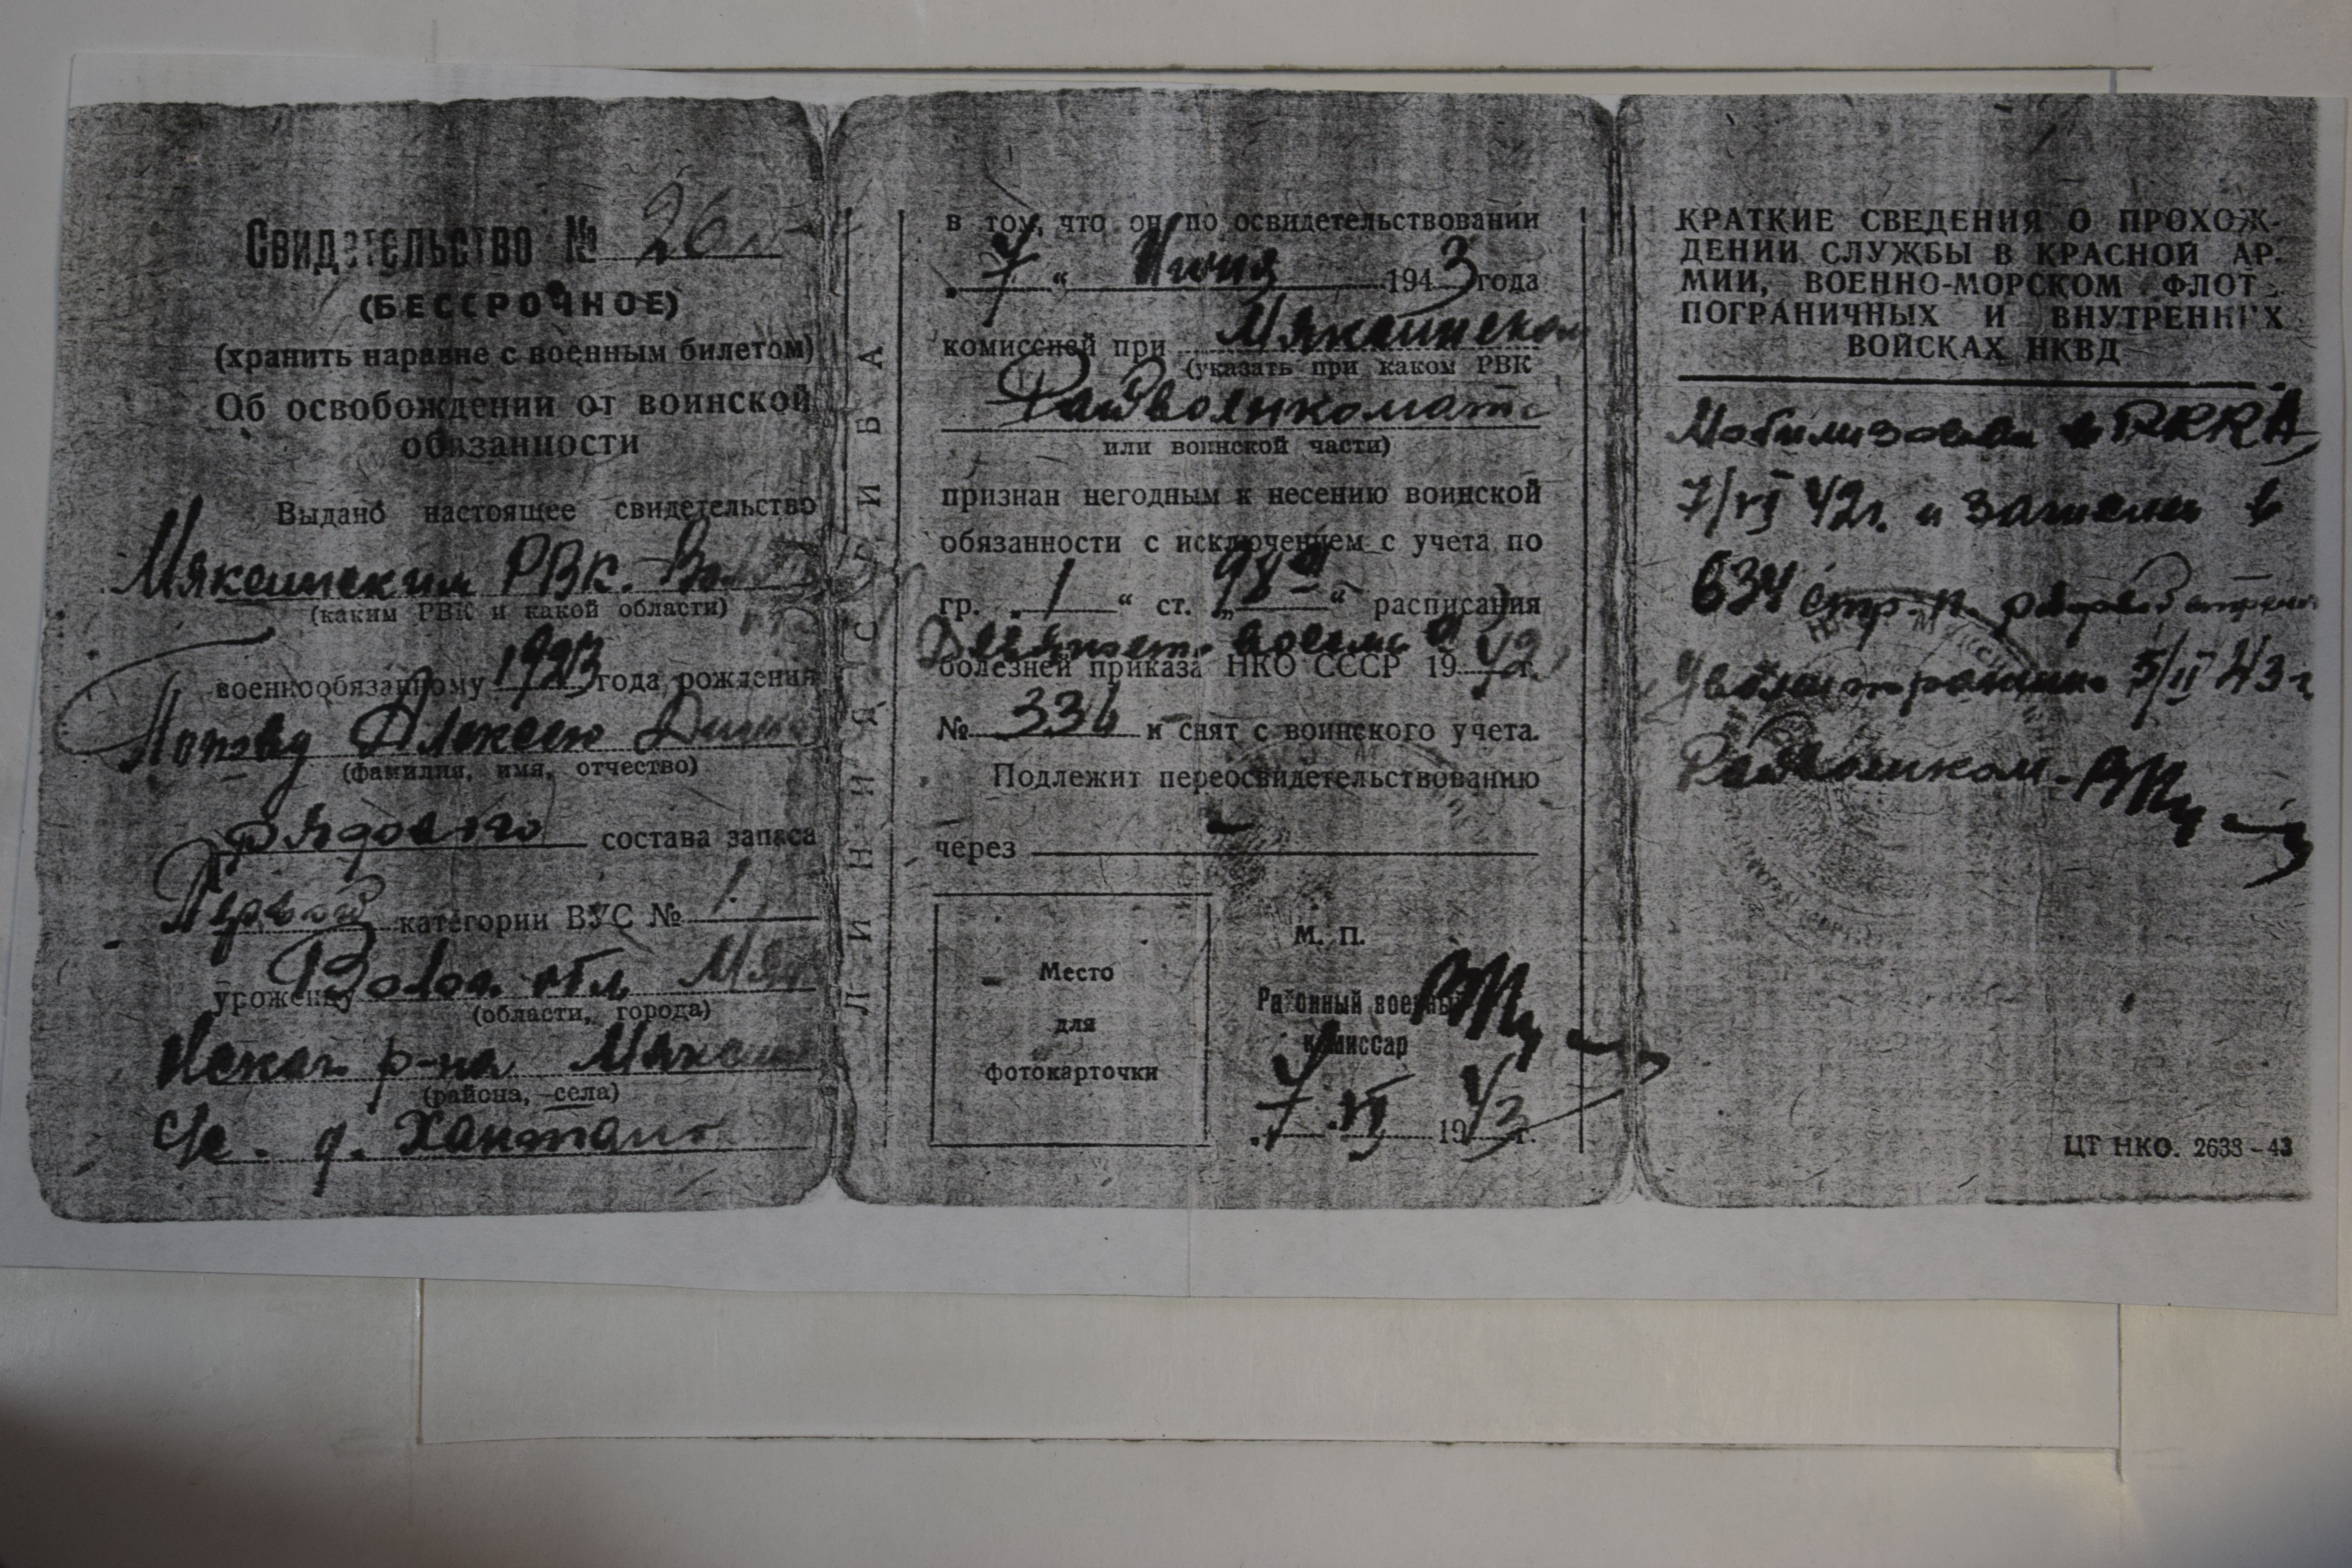 Свидетельство № 26
(БЕССРОЧНОЕ)
(хранить наравне с военным билетом)
Об освобождении от воинской
обязанности
Выдано настоящее свидетельство
Мяксинским РВК.
(каким РВК и какой области)
военнообязанному 1923 года рождения
Алексею
(фамилия, имя, отчество)
рядового состава запаса
Первой категории ВУС № 1.
уроженцу Волог. обл.
(области, города)
р-на
(района, села)
д.
ЛИНИЯ СГИБА
в том, что он по освидетельствовании
„7“ Июня 1943 года
комиссией при Мяксинском
(указать при каком РВК
Райвоенкомате
или воинской части)
признан негодным к несению воинской
обязанности с исключением с учета по
гр. „1“ ст. „98“ расписания
Девяносто восемь
болезней приказа НКО СССР 1942 г.
№ 336 и снят с воинского учета.
Подлежит переосвидетельствованию
через
Место
для
фотокарточки
М. П.
Районный военный
комиссар
7 VI 1943 г.
КРАТКИЕ СВЕДЕНИЯ О ПРОХОЖ-
ДЕНИИ СЛУЖБЫ В КРАСНОЙ АР-
МИИ, ВОЕННО-МОРСКОМ ФЛОТ
ПОГРАНИЧНЫХ И ВНУТРЕННИХ
ВОЙСКАХ НКВД
Мобилизован в РККА
42г. и зачислен в
634 стр. п.
43г
Райвоенком
ЦТ НКО. 2633-43